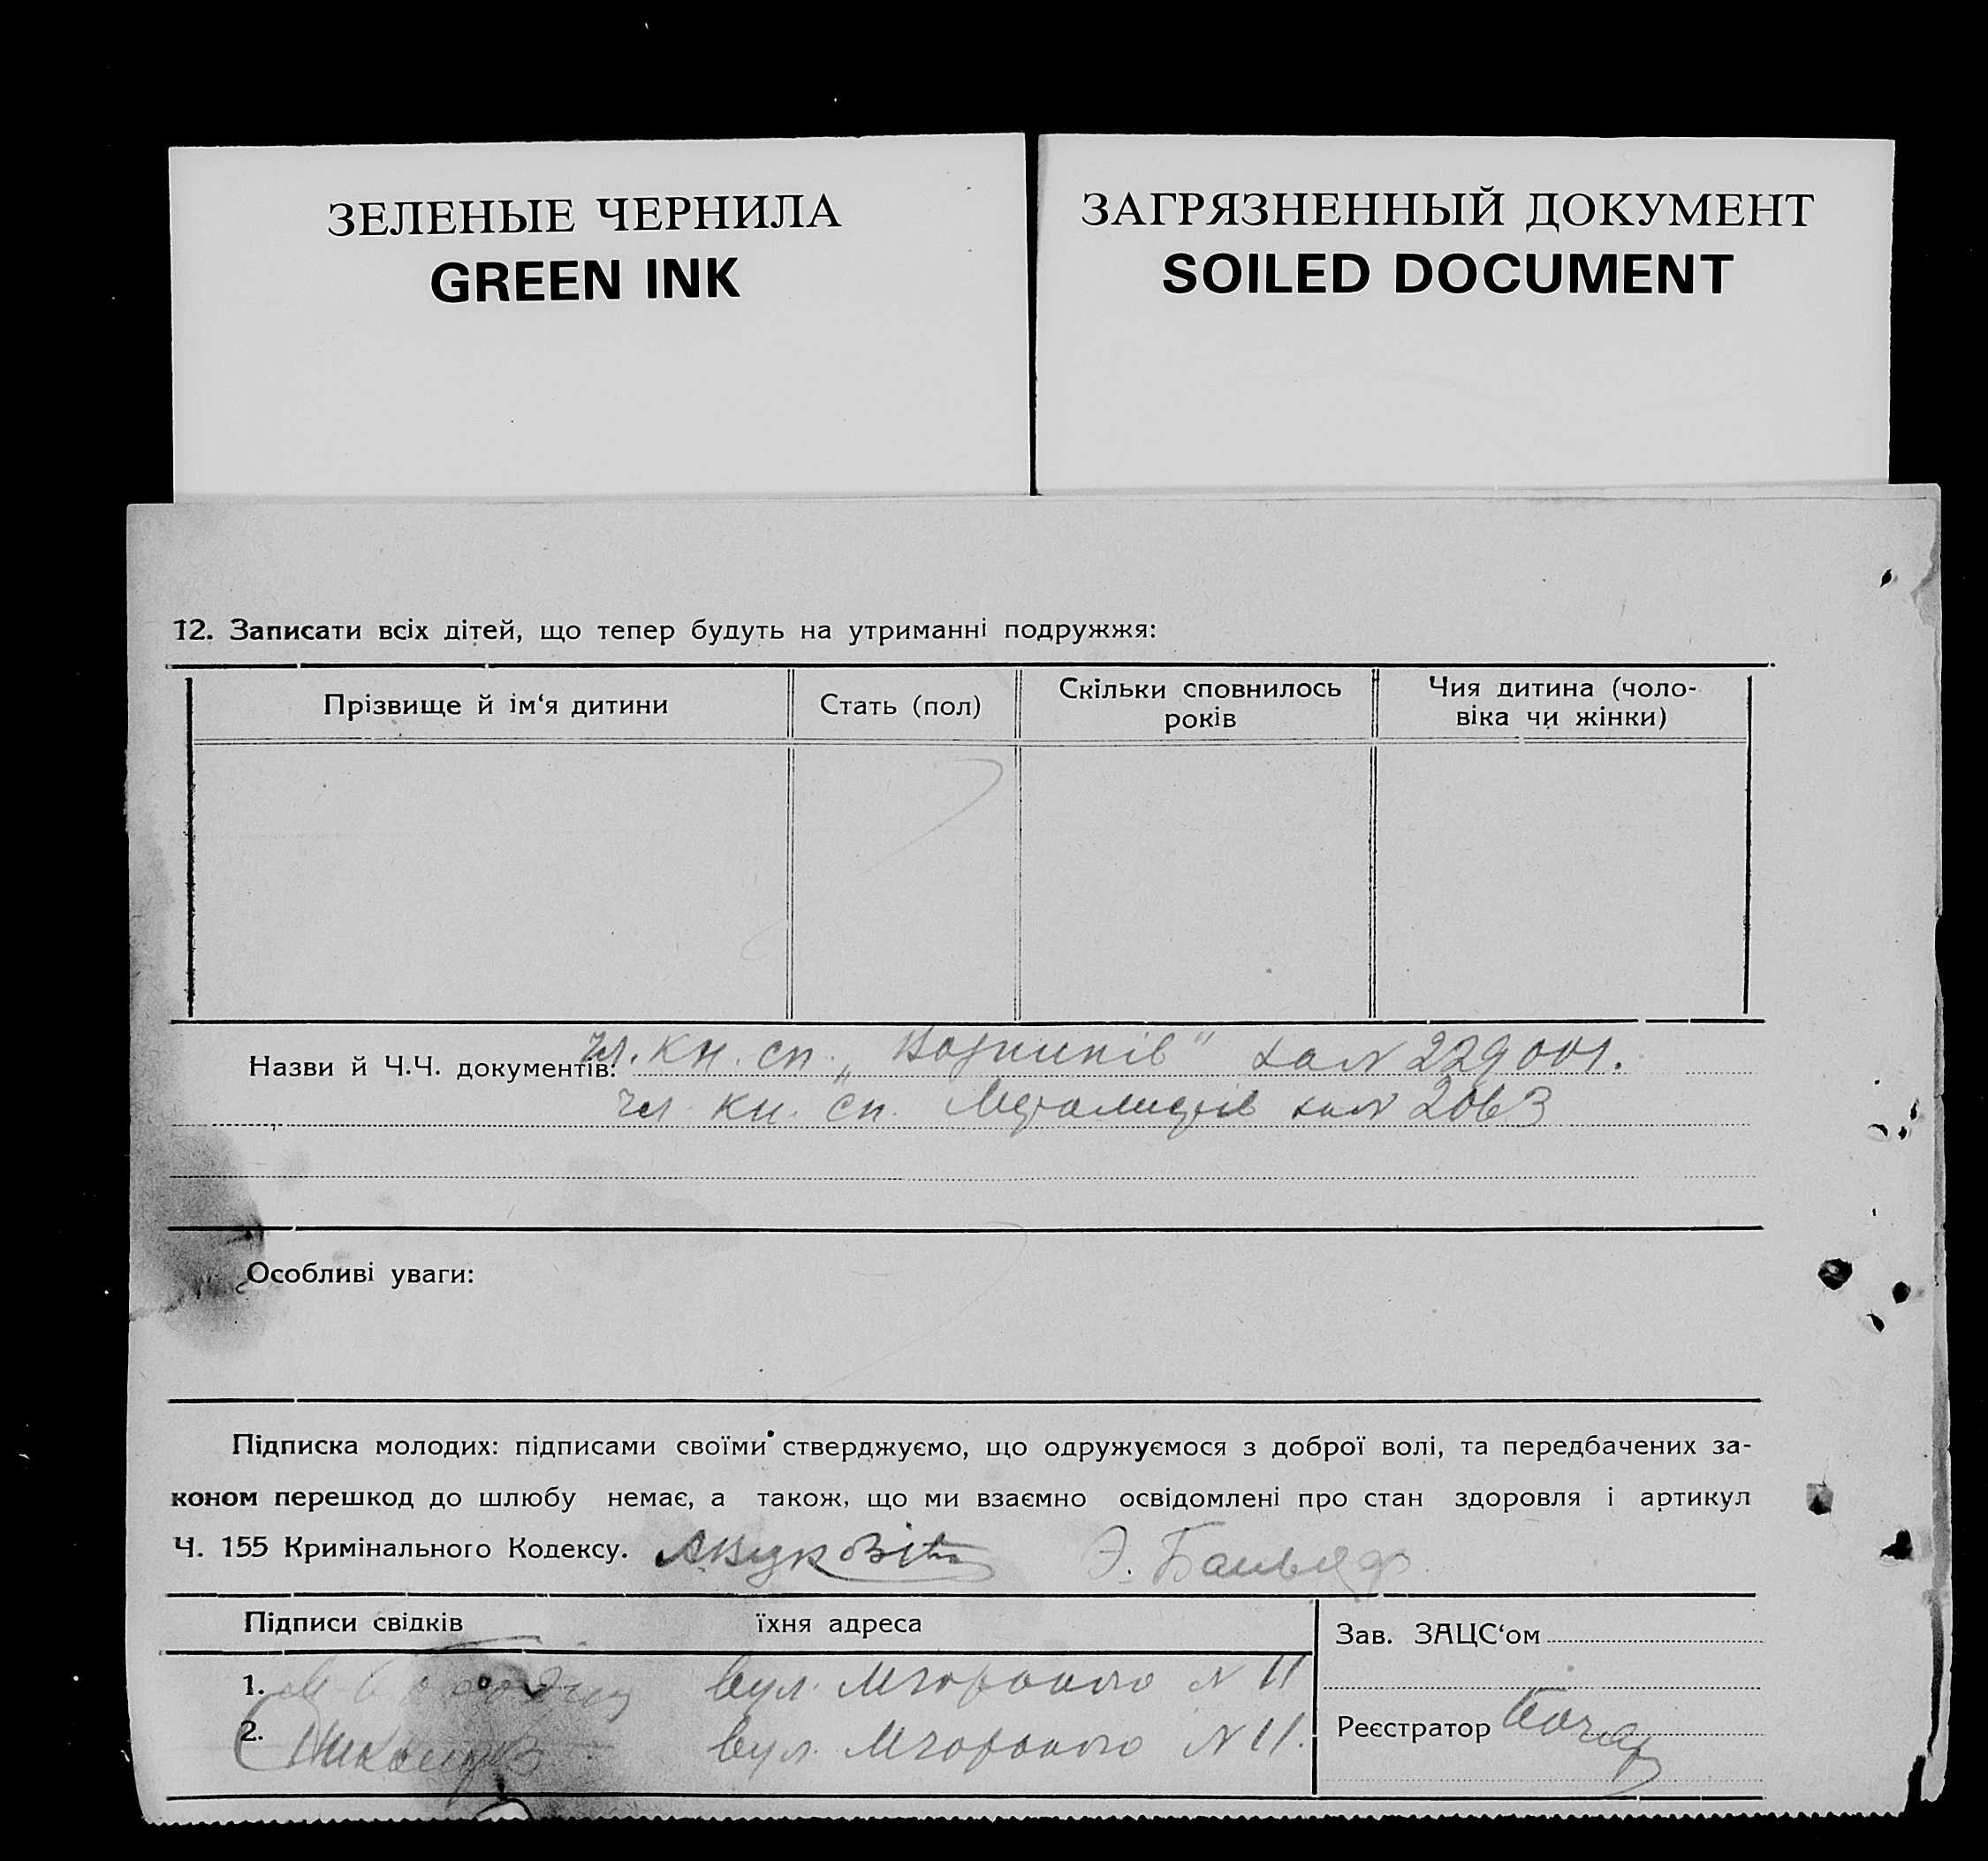 ЗЕЛЕНЫЕ ЧЕРНИЛА
GREEN INK
ЗАГРЯЗНЕННЫЙ ДОКУМЕНТ
SOILED DOCUMENT
12. Записати всіх дітей, що тепер будуть на утриманні подружжя:
Прізвище й ім‘я дитини
Стать (пол)
Скільки сповнилось
років
Чия дитина (чоло-
віка чи жінки)
Назви й Ч.Ч. документів: чл. кн. сп. № 229001.
чл. кн. сп. Металистів № 2063
Особливі уваги:
Підписка молодих: підписами своїми стверджуємо, що одружуємося з доброї волі, та передбачених за-
коном перешкод до шлюбу немає, а також, що ми взаємно освідомлені про стан здоровля і артикул
Ч. 155 Кримінального Кодексу. Э.
Підписи свідків
їхня адреса
1. вул. № 11
2. вул. № 11.
Зав. ЗАЦС‘ом
Реєстратор